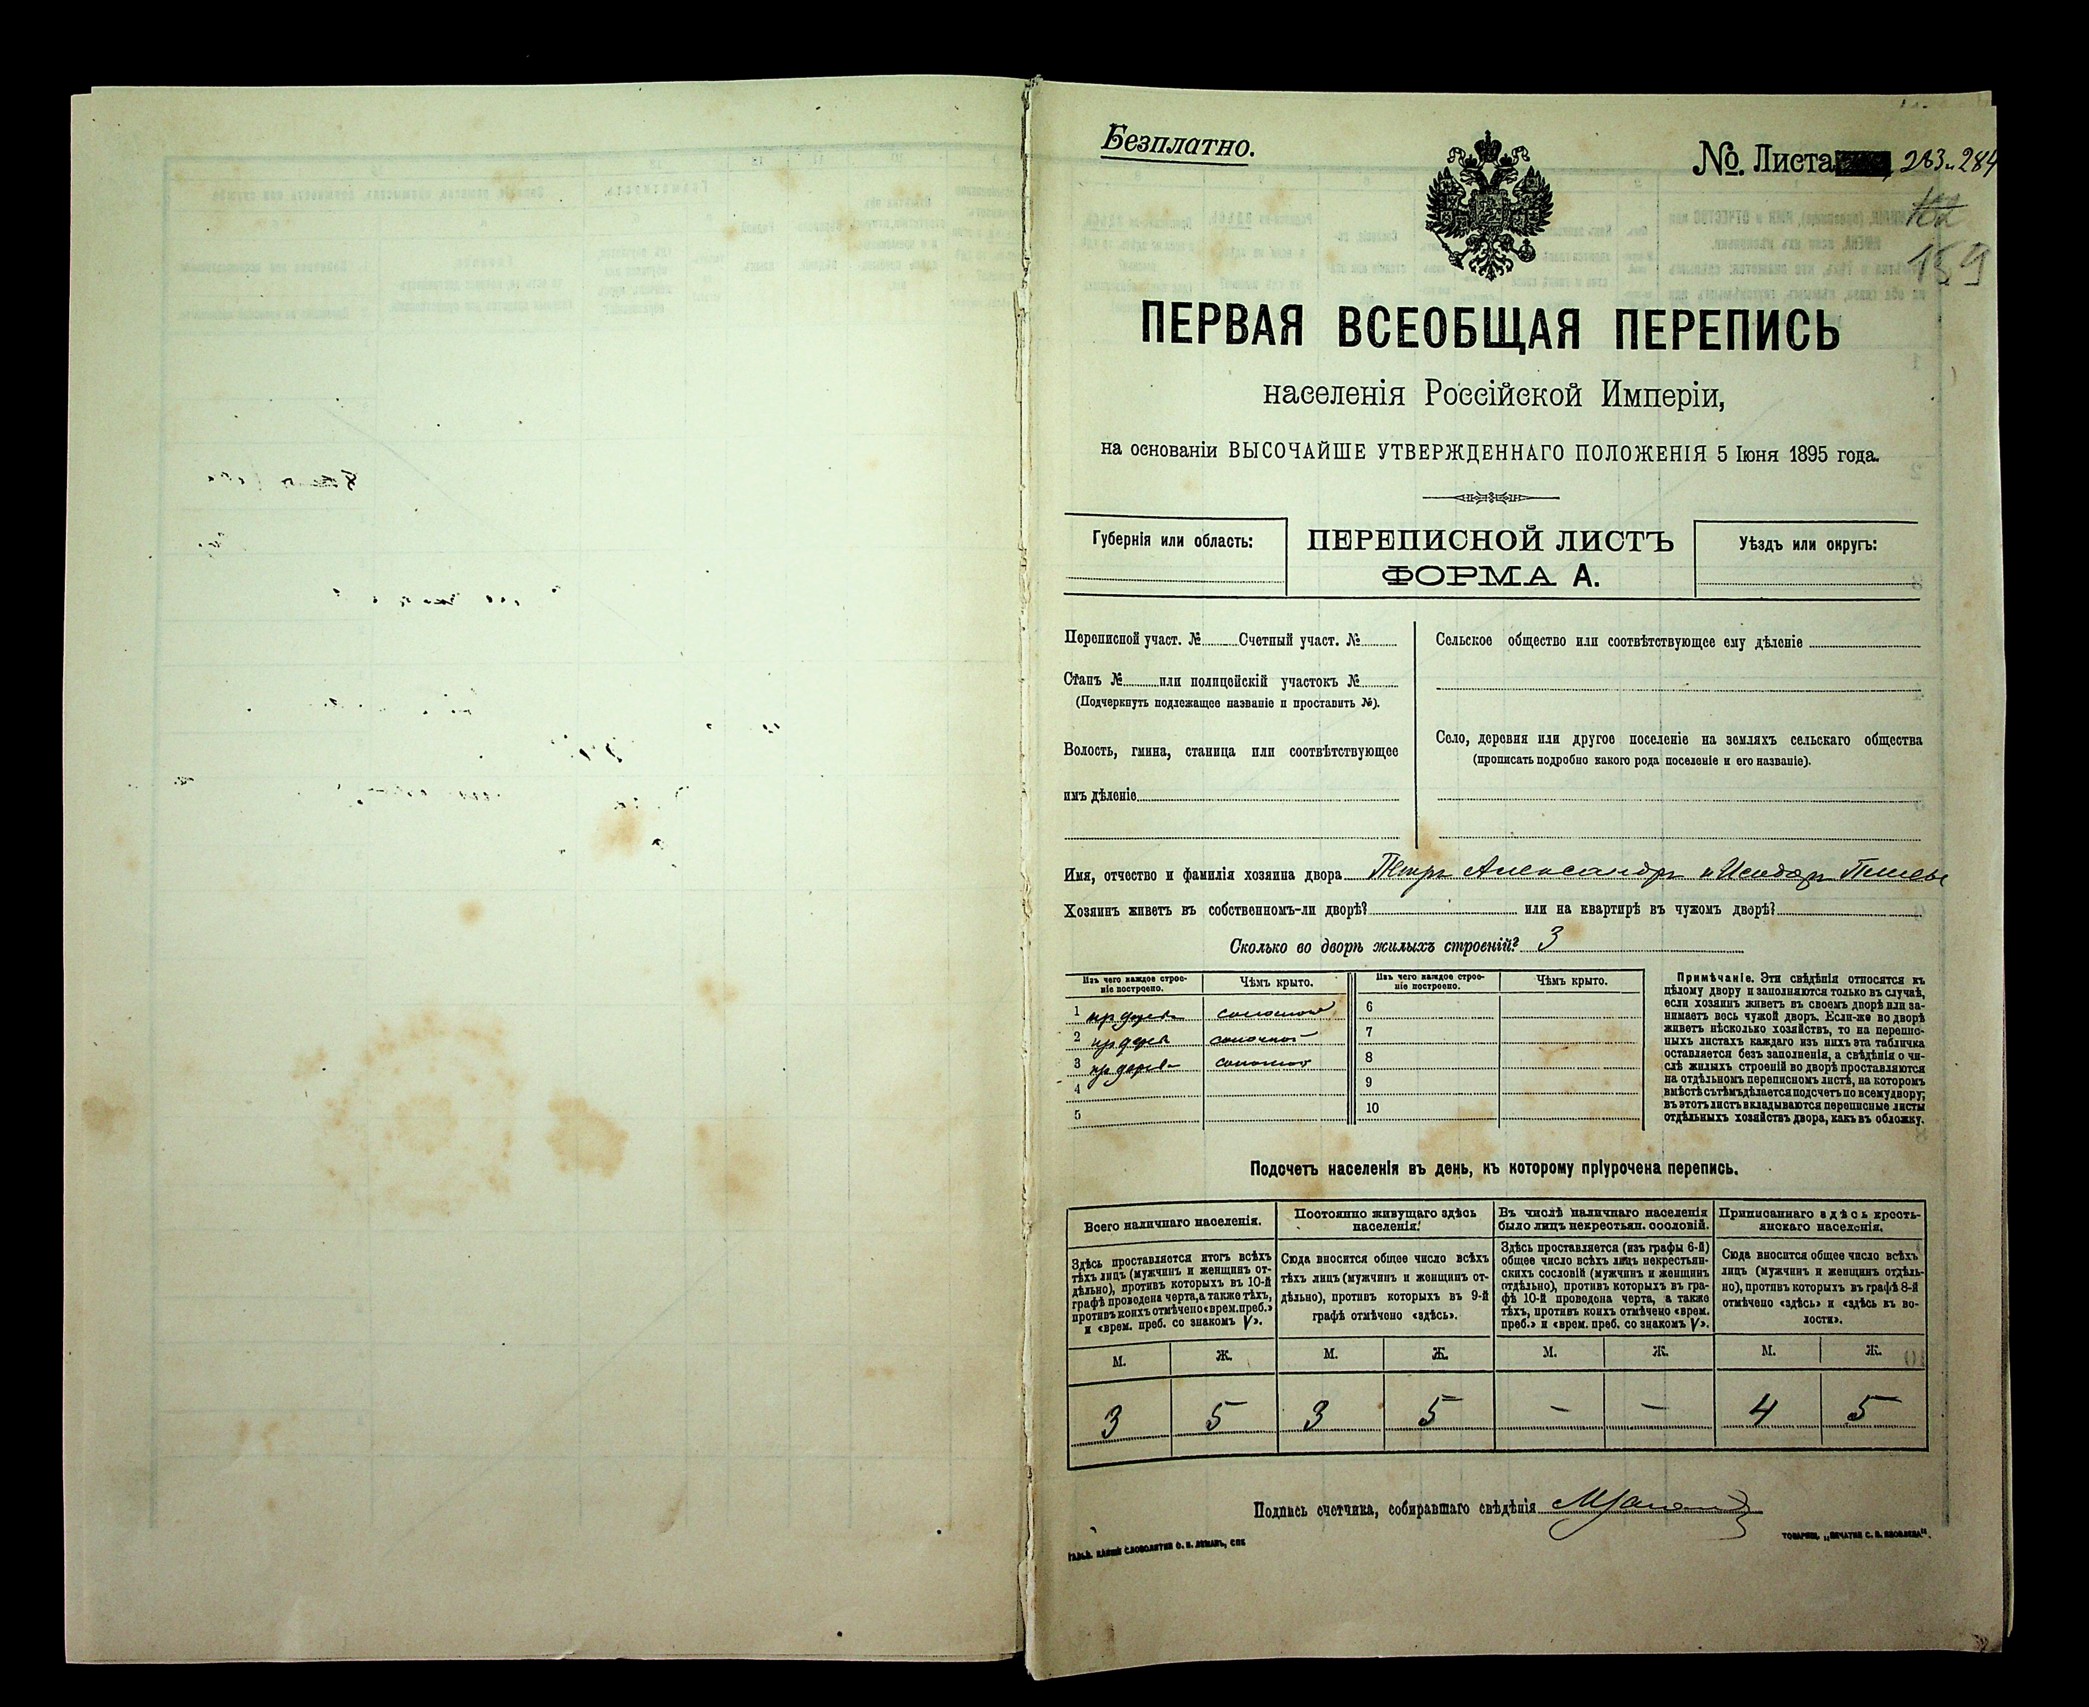 Безплатно.
№. Листа 283 и 284
159
ПЕРВАЯ ВСЕОБЩАЯ ПЕРЕПИСЬ
населенія Россійской Имперіи,
на основаніи ВЫСОЧАЙШЕ УТВЕРЖДЕННАГО ПОЛОЖЕНІЯ 5 Іюня 1895 года.
Губернія или область:
ПЕРЕПИСНОЙ ЛИСТЪ
ФОРМА А.
Уѣздъ или округъ:
Переписной участ. № Счетный участ. №
Станъ № или полицейскій участокъ №
(Подчеркнуть подлежащее названіе и проставить №).
Волость, гмина, станица или соотвѣтствующее
имъ дѣленіе
Сельское общество или соотвѣтствующее ему дѣленіе
Село, деревня или другое поселеніе на земляхъ сельскаго общества
(прописать подробно какого рода поселеніе и его названіе).
Имя, отчество и фамилія хозяина двора Петръ Александръ и
Хозяинъ живетъ въ собственномъ-ли дворѣ? или на квартирѣ въ чужомъ дворѣ?
Сколько во дворѣ жилыхъ строеній? 3
Изъ чего каждое строе-
ніе построено.
Чѣмъ крыто.
Изъ чего каждое строе-
ніе построено.
Чѣмъ крыто.
1 изъ дерева соломой 6
2 изъ дерев соломой 7
3 изъ дерева соломой 8
4 9
5 10
Примѣчаніе. Эти свѣдѣнія относятся къ
цѣлому двору и заполняются только въ случаѣ,
если хозяинъ живетъ въ своемъ дворѣ или за-
нимаетъ весь чужой дворъ. Если-же во дворѣ
живетъ нѣсколько хозяйствъ, то на перепис-
ныхъ листахъ каждаго изъ нихъ эта табличка
оставляется безъ заполненія, а свѣдѣнія о чи-
слѣ жилыхъ строеній во дворѣ проставляются
на отдѣльномъ переписномъ листѣ, на которомъ
вмѣстѣ съ тѣмъ дѣлается подсчетъ по всему двору;
въ этотъ листъ вкладываются переписные листы
отдѣльныхъ хозяйствъ двора, какъ въ обложку.
Подсчетъ населенія въ день, къ которому пріурочена перепись.
Всего наличнаго населенія.
Здѣсь проставляется итогъ всѣхъ
тѣхъ лицъ (мужчинъ и женщинъ от-
дѣльно), противъ которыхъ въ 10-й
графѣ проведена черта, а также тѣхъ,
противъ коихъ отмѣчено «врем. преб.»
и «врем. преб. со знакомъ V».
Постоянно живущаго здѣсь
населенія.
Сюда вносится общее число всѣхъ
тѣхъ лицъ (мужчинъ и женщинъ от-
дѣльно), противъ которыхъ въ 9-й
графѣ отмѣчено «здѣсь».
Въ числѣ наличнаго населенія
было лицъ некрестьян. сословій.
Здѣсь проставляется (изъ графы 6-й)
общее число всѣхъ лицъ некрестьян-
скихъ сословій (мужчинъ и женщинъ
отдѣльно), противъ которыхъ въ гра-
фѣ 10-й проведена черта, а также
тѣхъ, противъ коихъ отмѣчено «врем.
преб.» и «врем. преб. со знакомъ V».
Приписаннаго здѣсь кресть-
янскаго населенія.
Сюда вносится общее число всѣхъ
лицъ (мужчинъ и женщинъ отдѣль-
но), противъ которыхъ въ графѣ 8-й
отмѣчено «здѣсь» и «здѣсь къ во-
лости».
М. Ж. М. Ж. М. Ж. М. Ж.
3 5 3 5 – – 4 5
Подпись счетчика, собиравшаго свѣдѣнія
ТОВАРИЩ. „ПЕЧАТНЯ С. П. ЯКОВЛЕВА".